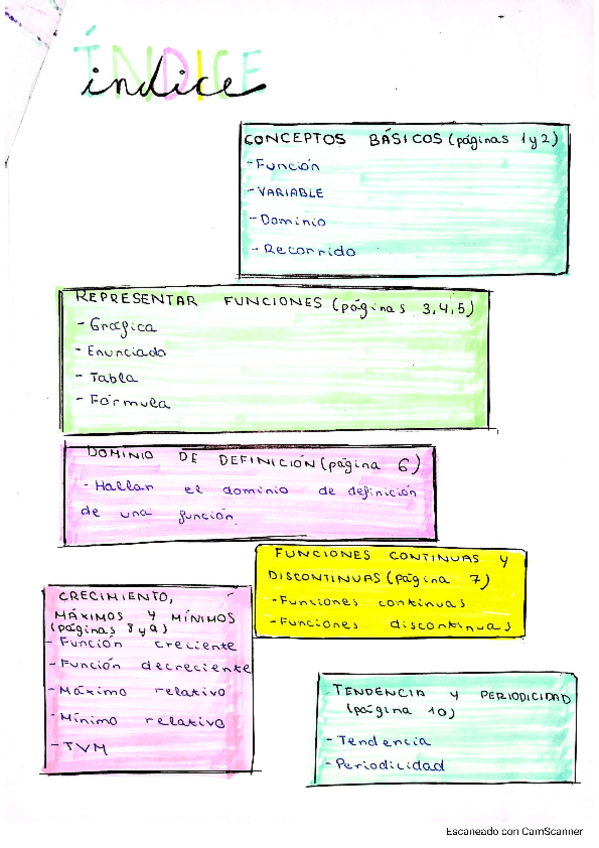 ÍNDICE
índice
CONCEPTOS BÁSICOS (páginas 1 y 2)
- Función
- VARIABLE
- Dominio
- Recorrido
REPRESENTAR FUNCIONES (páginas 3,4,5)
- Gráfica
- Enunciado
- Tabla
- Fórmula
DOMINIO DE DEFINICIÓN (página 6)
- Hallar el dominio de definición
de una función.
FUNCIONES CONTINUAS Y
DISCONTINUAS (página 7)
- Funciones continuas
- Funciones discontinuas
CRECIMIENTO,
MÁXIMOS Y MÍNIMOS
(páginas 8 y 9)
- Función creciente
- Función decreciente
- Máximo relativo
- Mínimo relativo
- TVM
TENDENCIA Y PERIODICIDAD
(página 10)
- Tendencia
- Periodicidad
Escaneado con CamScanner